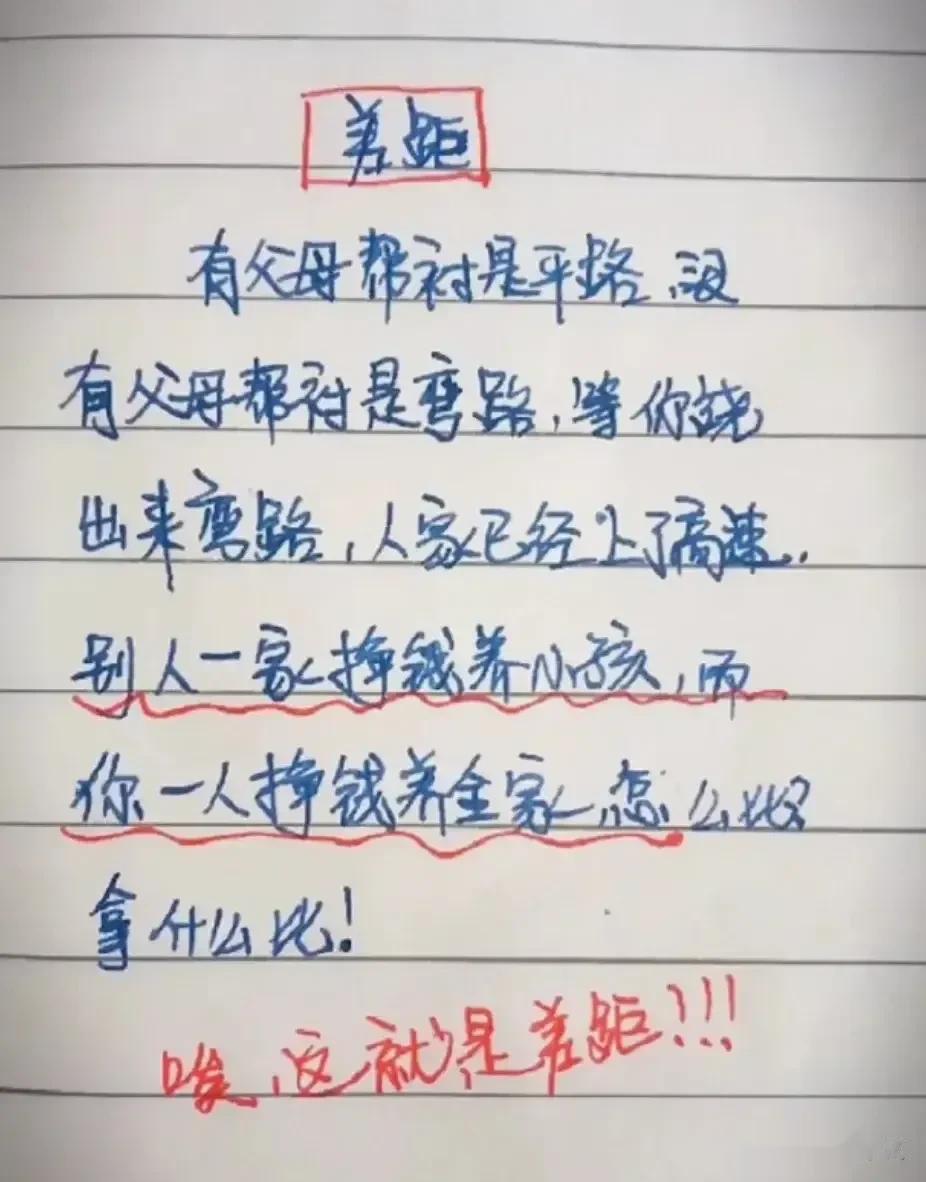 差距
有父母帮衬是平路,没
有父母帮衬是弯路,等你绕
出来弯路,人家已经上了高速.
别人一家挣钱养小孩,而
你一人挣钱养全家,怎么比?
拿什么比!
唉,这就是差距!!!